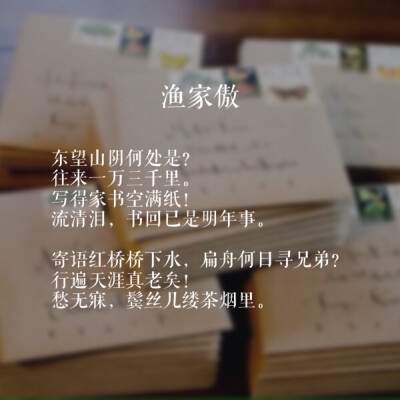 渔家傲
东望山阴何处是?
往来一万三千里。
写得家书空满纸!
流清泪，书回已是明年事。
寄语红桥桥下水，扁舟何日寻兄弟?
行遍天涯真老矣!
愁无寐，鬓丝几缕茶烟里。